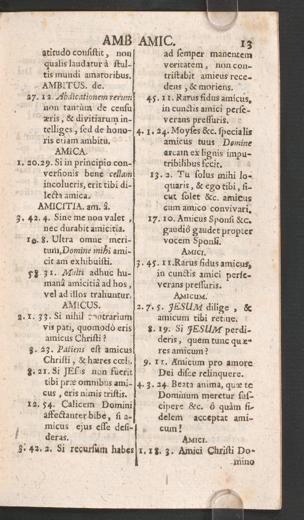 AMB AMIC. 13
atitudo consistit, non
qualis laudatur à stul-
tis mundi amatoribus.
AMBITUS. de.
27. 12. Abdicationem rerum
non tantùm de censu
æris, & divitiarum in-
telliges, sed de hono-
ris etiam ambitu.
AMICA.
1. 20. 29. Si in principio con-
versionis bene cellam
incolueris, erit tibi di-
lecta amica.
AMICITIA. am. â.
3. 42. 4. Sine me non valet,
nec durabit amicitia.
10. 8. Ultra omne meri-
tum, Domine mihi ami-
cit am exhibuisti.
58 31. Multi adhuc hu-
manâ amicitiâ ad hos,
vel ad illos trahuntur.
AMICUS.
2. 1. 33. Si nihil contrarium
vis pati, quomodò eris
amicus Christi?
8. 23. Patiens est amicus
Christi, & hæres cœli.
8. 21. Si JESUS non fuerit
tibi præ omnibus ami-
cus, eris nimis tristis.
12. 54. Calicem Domini
affectanter bibe, si a-
micus ejus esse desi-
deras.
3. 42. 2. Si recursum habes
ad semper manentem
veritatem, non con-
tristabit amicus rece-
dens, & moriens.
45. 11. Rarus fidus amicus,
in cunctis amici perse-
verans pressuris.
4. 1. 24. Moyses &c. specialis
amicus tuus Domine
arcam ex lignis impu-
tribilibus fecit.
13. 2. Tu solus mihi lo-
quaris, & ego tibi, si-
cut solet &c. amicus
cum amico convivari.
17. 10. Amicus Sponsi &c.
gaudiô gaudet propter
vocem Sponsi.
AMICI.
3. 45. 11. Rarus fidus amicus,
in cunctis amici perse-
verans pressuris.
AMICUM.
2. 7. 5. JESUM dilige, &
amicum tibi retine.
8. 19. Si JESUM perdi-
deris, quem tunc quæ-
res amicum?
9. 11. Amicum pro amore
Dei disce relinquere.
4. 3. 24. Beata anima, quæ te
Dominum meretur sus-
cipere &c. ô quàm fi-
delem acceptat ami-
cum!
AMICI.
1. 18. 3. Amici Christi Do-
mino